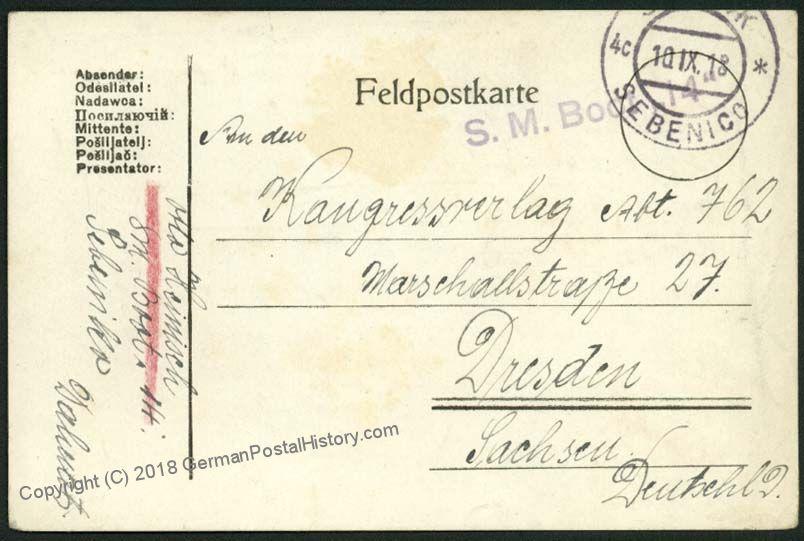 Absender:
Odesílatel:
Nadawca:
Посилаючій:
Mittente:
Pošiljatelj:
Pošiljač:
Presentator:
Feldpostkarte
4c 10 IX. 18 *
SEBENICO
S. M. Boot „14“
An den
Kongressverlag Abt. 762
Marschallstraße 27.
Dresden
Sachsen
Deutschld.
Otto
S.M. Boot. 14.
Šebeniko
Copyright (C) 2018 GermanPostalHistory.com